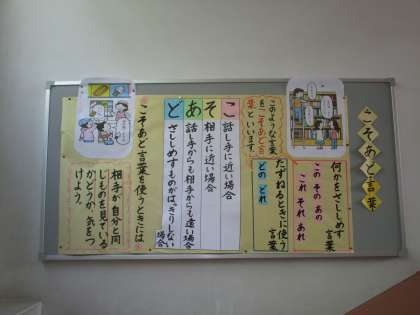 こそあど言葉
何かをさししめす
言葉
この その あの
これ それ あれ
たずねるときに使う
言葉
どの どれ
このような言葉
を「こそあど言
葉」といいます。
こ 話し手に近い場合
そ 相手に近い場合
あ 話し手からも相手からも遠い場合
ど さししめすものがはっきりしない
場合
こそあど言葉を使うときには、
相手が自分と同
じものを見ている
かどうか、気をつ
けよう。